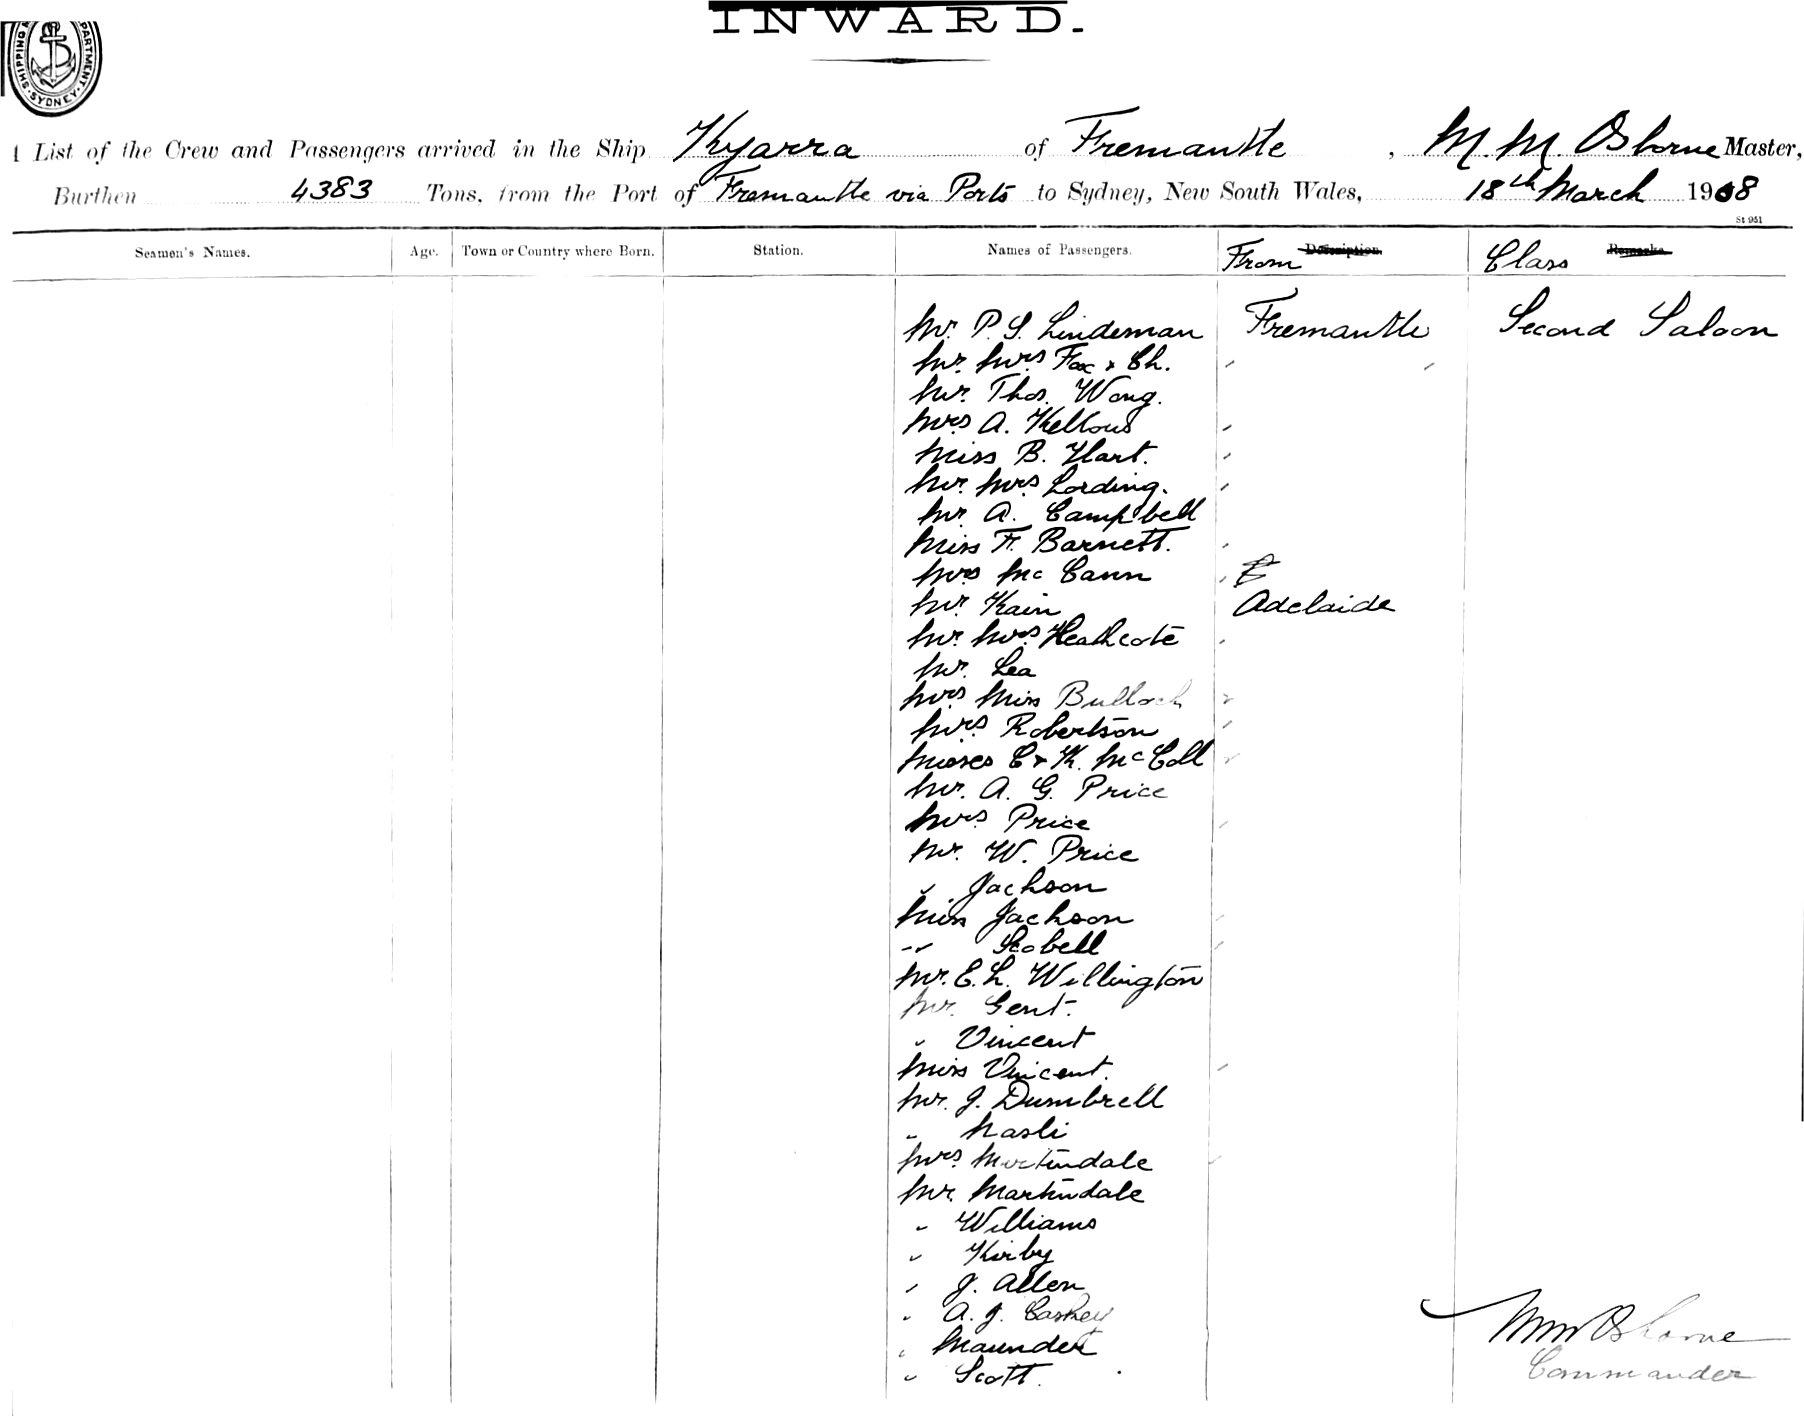 INWARD.
SHIPPING DEPARTMENT SYDNEY
List of the Crew and Passengers arrived in the Ship Kyarra of Fremantle, M. M. Osborne Master,
Burthen 4383 Tons, from the Port of Fremantle via Ports to Sydney, New South Wales, 18th March 1908
St 951
Seamen's Names. Age. Town or Country where Born. Station. Names of Passengers. From Description. Class Remarks.
Mr. P. S. Lindeman Fremantle Second Saloon
Mr. Mrs Fox & Ch. " "
Mr. Thos. Wong.
Mrs A. Kellous "
Miss B. Hart. "
Mr. Mrs Lording. "
Mr. A. Campbell
Miss F. Barnett. "
Mrs McCann "
Mr. Kain Adelaide
Mr. Mrs Heathcote "
Mr. Lea
Mrs Miss Bulloch "
Mrs. Robertson "
Misses C & K. McColl "
Mr. A. G. Price
Mrs Price "
Mr. W. Price
" Jackson
Miss Jackson "
" Scobell "
Mr. E. L. Willington
Mr. Gent.
" Vincent
Miss Vincent. "
Mr. J. Dumbrell
" Nasli
Mrs. Martindale "
Mr. Martindale
" Williams
" Kirby
" J. Allen
" A. J. Caskey
" Maunder
" Scott.
M M Osborne
Commander